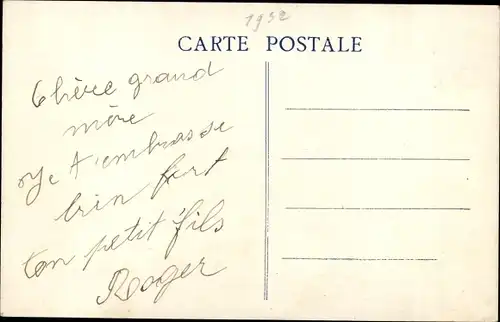 1932
CARTE POSTALE
Chère grand
mère
Je t'embrasse
bien fort
ton petit fils
Roger